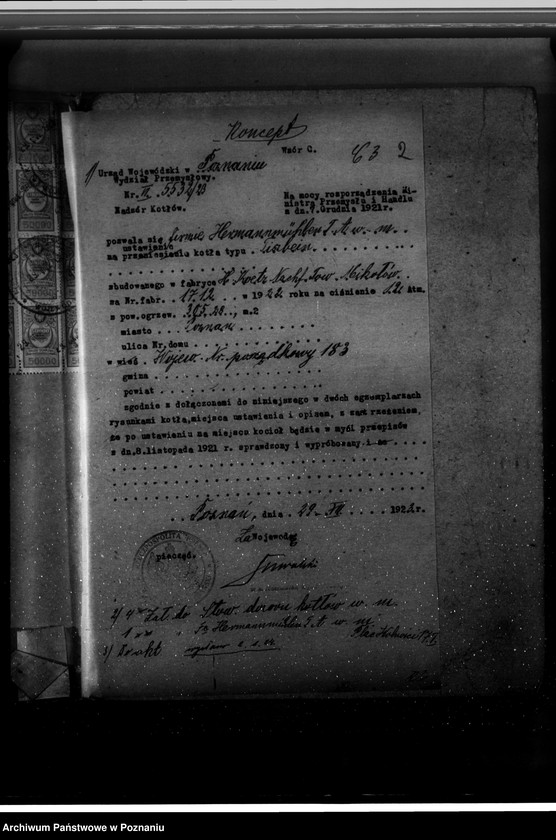 Koncept
Wzór C.
C 3 2
1) Urząd Wojewódzki w Poznaniu
Wydział Przemysłowy.
Nr. II. 5532/23
Nadzór Kotłów.
Na mocy rozporządzenia Mi-
nistra Przemysłu i Handlu
z dn. 9. Grudnia 1921r.
pozwala się firmie Hermannmühlen T. A. w. m.
ustawienie
na przeniesienie kotła typu
zbudowanego w fabryce H. Koetz Nachf. Tow. Mikołów
za Nr. fabr. 1712 w 1922 roku na ciśnienie 12 Atm.
z pow. ogrzew. m.2
miasto Poznań
ulica Nr. domu
w wieś Wojew. Nr. porządkowy 183
gmina
powiat
zgodnie z dołączonemi do niniejszego w dwóch egzemplarzach
rysunkami kotła, miejsca ustawienia i opisem, z zastrzeżeniem,
że po ustawieniu na miejsca kocioł będzie w myśl przepisów
z dn. 8. listopada 1921 r. sprawdzony i wypróbowany i że
Poznań, dnia 29. XII 192 r.
Za Wojewodę
pieczęć.
2) 4 Zał. do Stow. dozoru kotłów w. m.
1 " " Fy Hermannmühlen T. A. w. m.
3)
50000
Archiwum Państwowe w Poznaniu